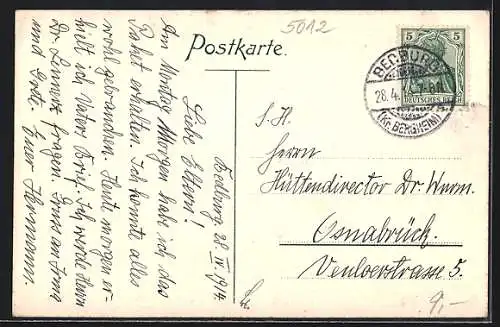 5012
Postkarte.
5 5
DEUTSCHES REICH
BEDBURG
28.4. 7-8
(Kr. BERGHEIM)
Bedburg 28. IV. 1914.
Liebe Eltern!
Am Montag Morgen hab ich das
Paket erhalten. Ich konnte alles
wohl gebrauchen. Heute morgen er-
hielt ich Vaters Brief. Ich werde Herrn
Dr. Lennartz fragen! Gruss an Irma
und Grete. Euer Hermann.
S. H.
Herrn
Hüttendirector Dr. Wurm.
Osnabrück.
Venloerstrasse 5.
9,-